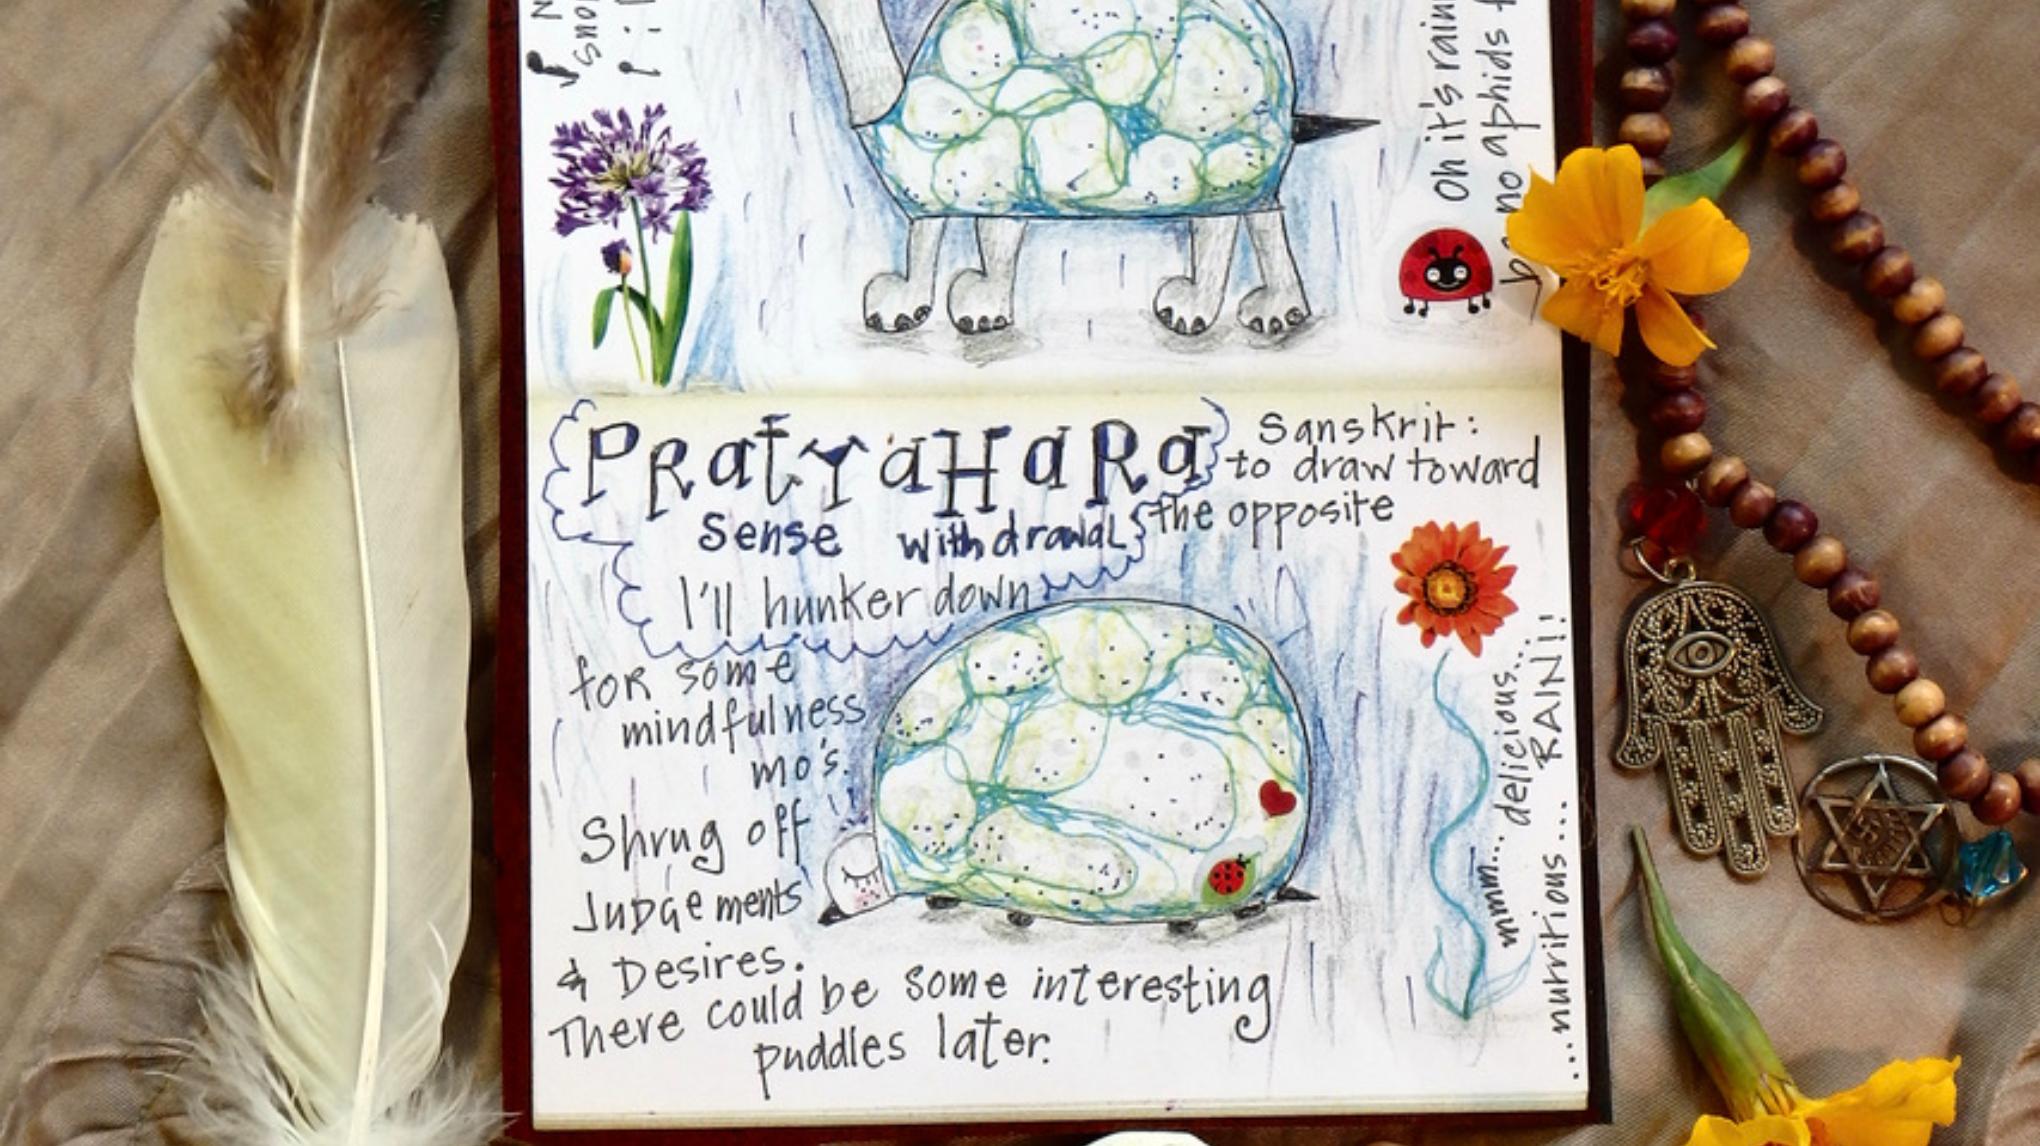 Oh it's rain
no aphids
PRatYaHaRa
Sense withdrawal
Sanskrit:
to draw toward
the opposite
I'll hunker down
for some
mindfulness
mo's.
Shrug off
Judgements
& Desires.
There could be some interesting
puddles later.
mmm... delicious...
...nutritious... RAIN!!